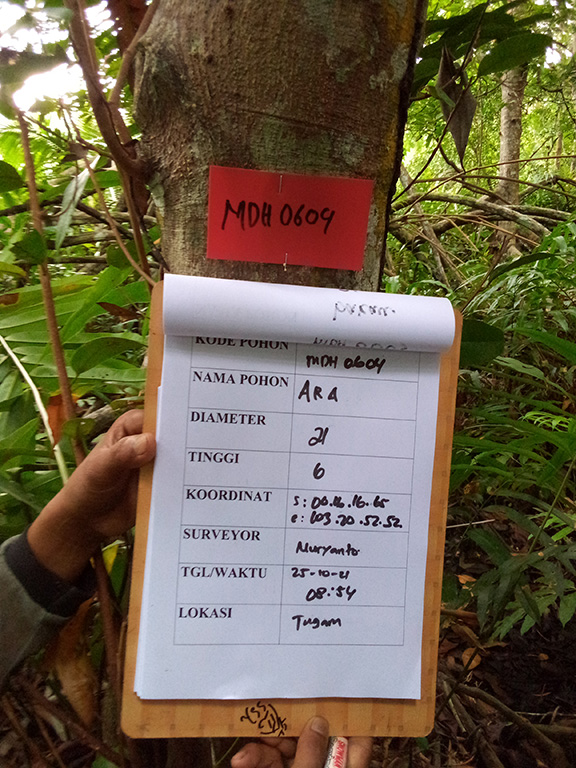 MDH 0609
KODE POHON
MDH 0609
NAMA POHON ARA
DIAMETER 21
TINGGI 6
KOORDINAT S : 00.16.16.65
e : 103.20.52.52
SURVEYOR Muryanto
TGL/WAKTU 25-10-21
08:54
LOKASI Tugam